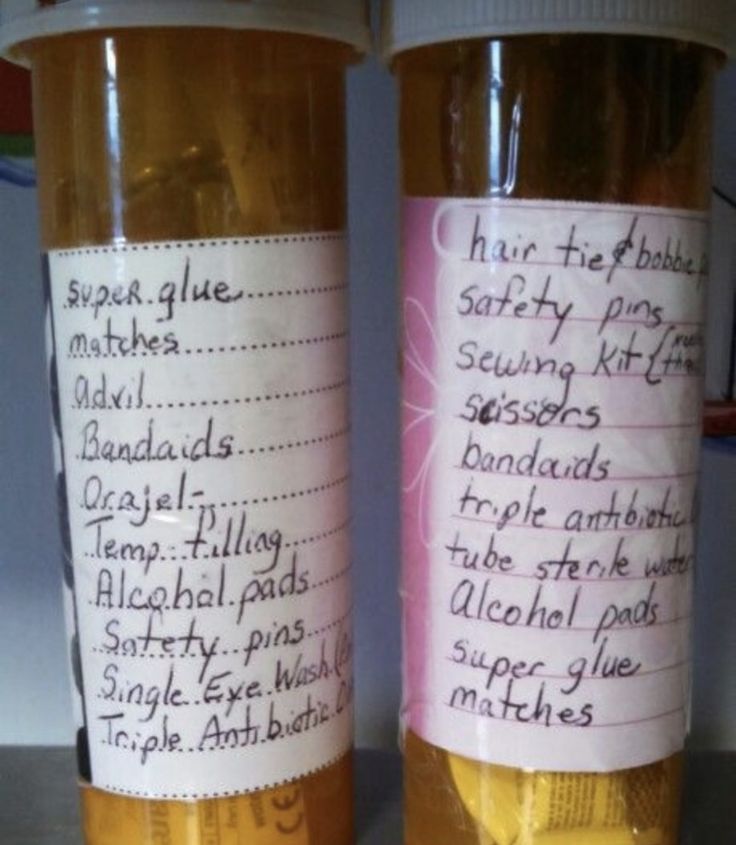 super glue
matches
Advil
Bandaids
Orajel-
Temp. filling
Alcohol pads
Safety pins
Single Eye Wash
Triple Antibiotic
CE
hair tie & bobbie
safety pins
Sewing Kit {
scissors
bandaids
triple antibiotic
tube sterile water
Alcohol pads
super glue
matches